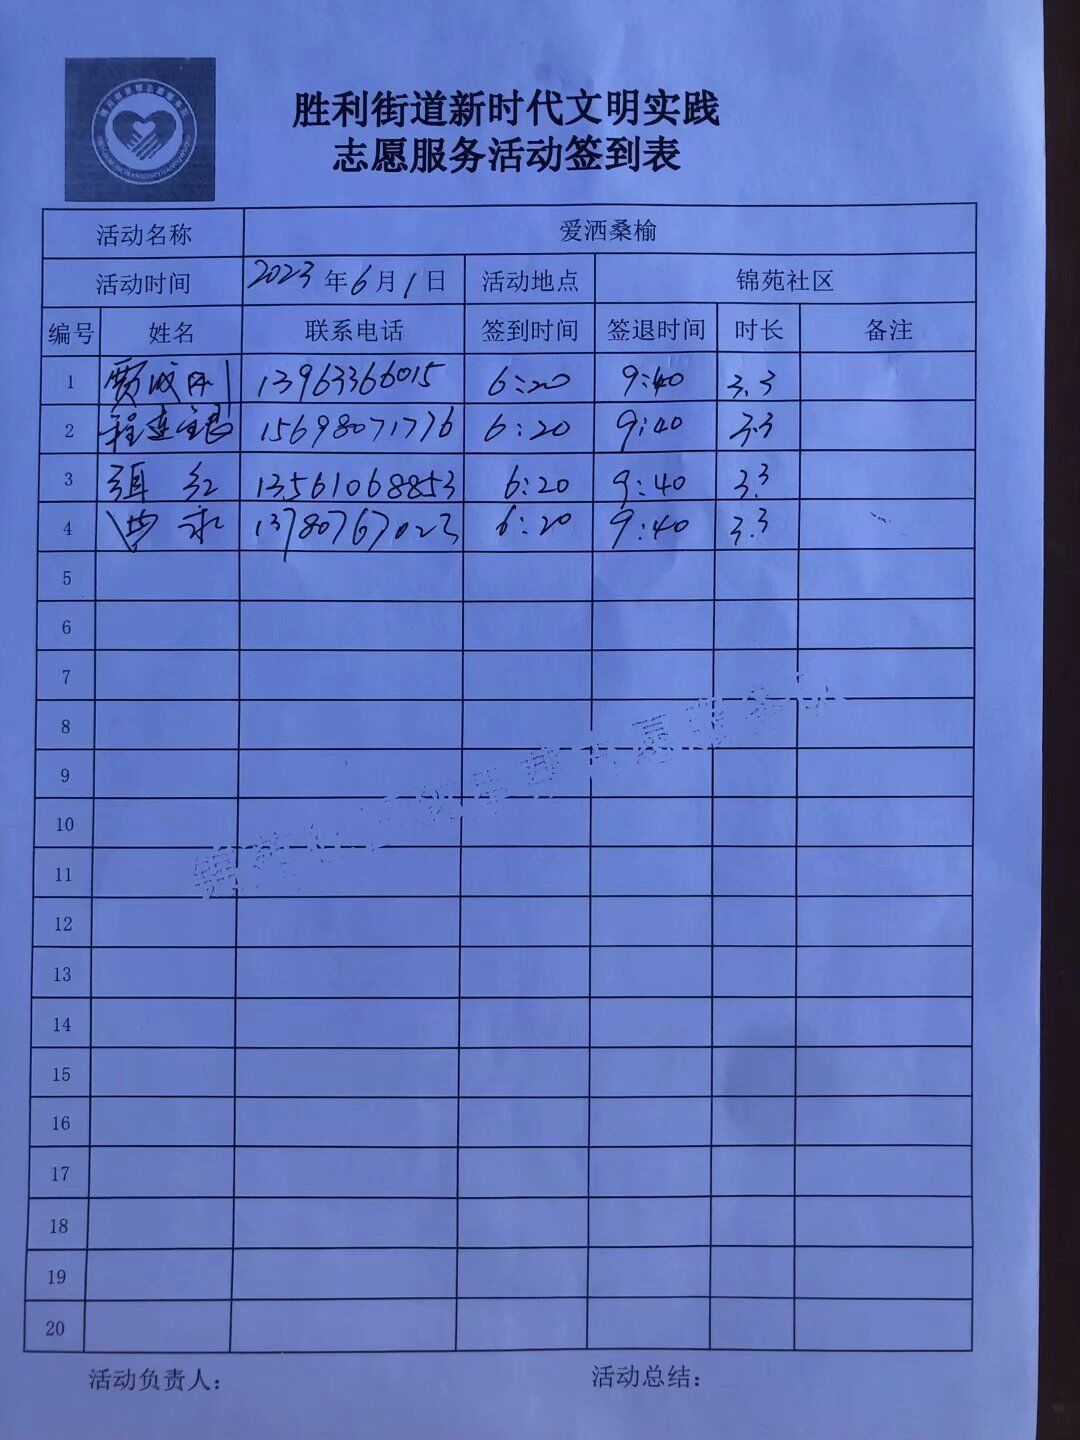 胜利街道新时代文明实践
志愿服务活动签到表
活动名称 爱洒桑榆
活动时间 2023年6月1日 活动地点 锦苑社区
编号 姓名 联系电话 签到时间 签退时间 时长 备注
1 贾 刚 13963366015 6:20 9:40 3.3
2 程连银 15698071776 6:20 9:40 3.3
3 红 13561068853 6:20 9:40 3.3
4 13780767023 6:20 9:40 3.3
5
6
7
8
9
10
11
12
13
14
15
16
17
18
19
20
活动负责人: 活动总结: